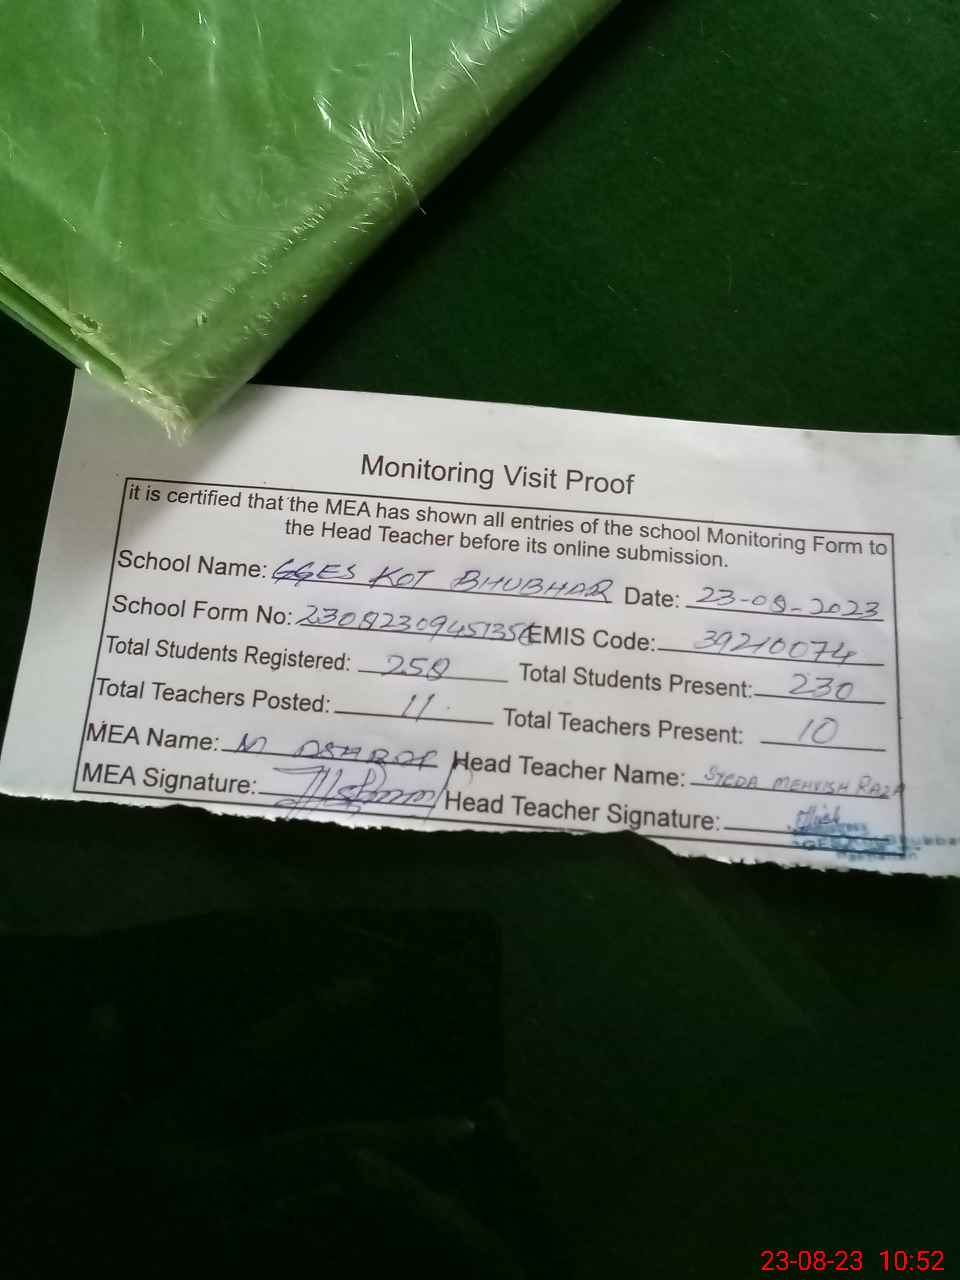 Monitoring Visit Proof
it is certified that the MEA has shown all entries of the school Monitoring Form to
the Head Teacher before its online submission.
School Name: GGES KOT BHUBHAR Date: 23-08-2023
School Form No: EMIS Code: 39210074
Total Students Registered: 258 Total Students Present: 230
Total Teachers Posted: 11 Total Teachers Present: 10
MEA Name: M ASHRAF Head Teacher Name: SYEDA MEHVISH RAZA
MEA Signature: Head Teacher Signature:
23-08-23 10:52